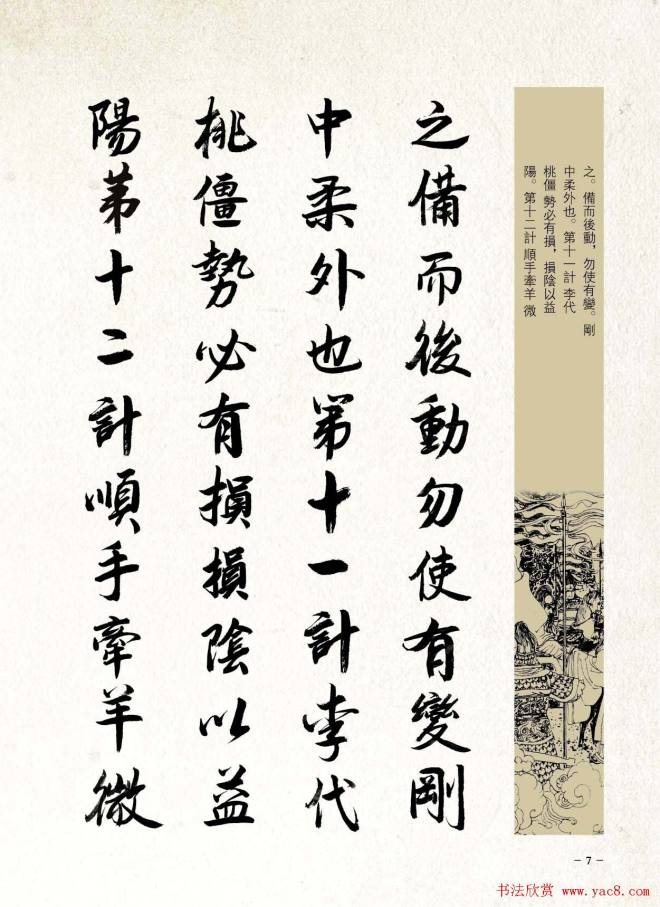 之。備而後動，勿使有變。剛
中柔外也。第十一計 李代
桃僵 勢必有損，損陰以益
陽。第十二計 順手牽羊 微
之備而後動勿使有變剛
中柔外也第十一計李代
桃僵勢必有損損陰以益
陽第十二計順手牽羊微
－7－
书法欣赏 www.yac8.com